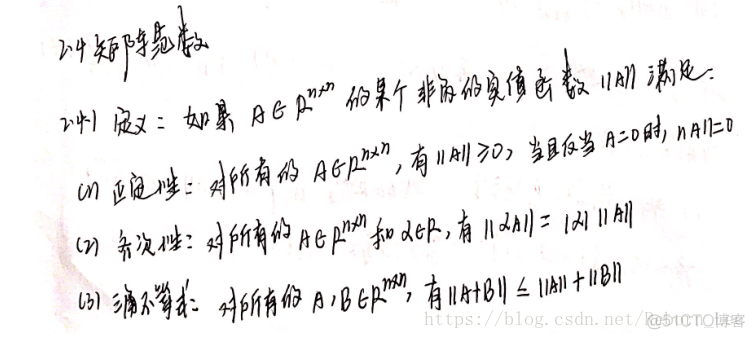 2.4 矩阵范数
2.4.1 定义：如果 A∈R^{n×n} 的某个非负的实值函数 ||A|| 满足：
(1) 正定性：对所有的 A∈R^{n×n}, 有 ||A||≥0, 当且仅当 A=0 时, ||A||=0
(2) 齐次性：对所有的 A∈R^{n×n} 和 α∈R, 有 ||αA|| = |α| ||A||
(3) 三角不等式：对所有的 A,B∈R^{n×n}, 有 ||A+B|| ≤ ||A||+||B||
https://blog.csdn.net/
@51CTO博客